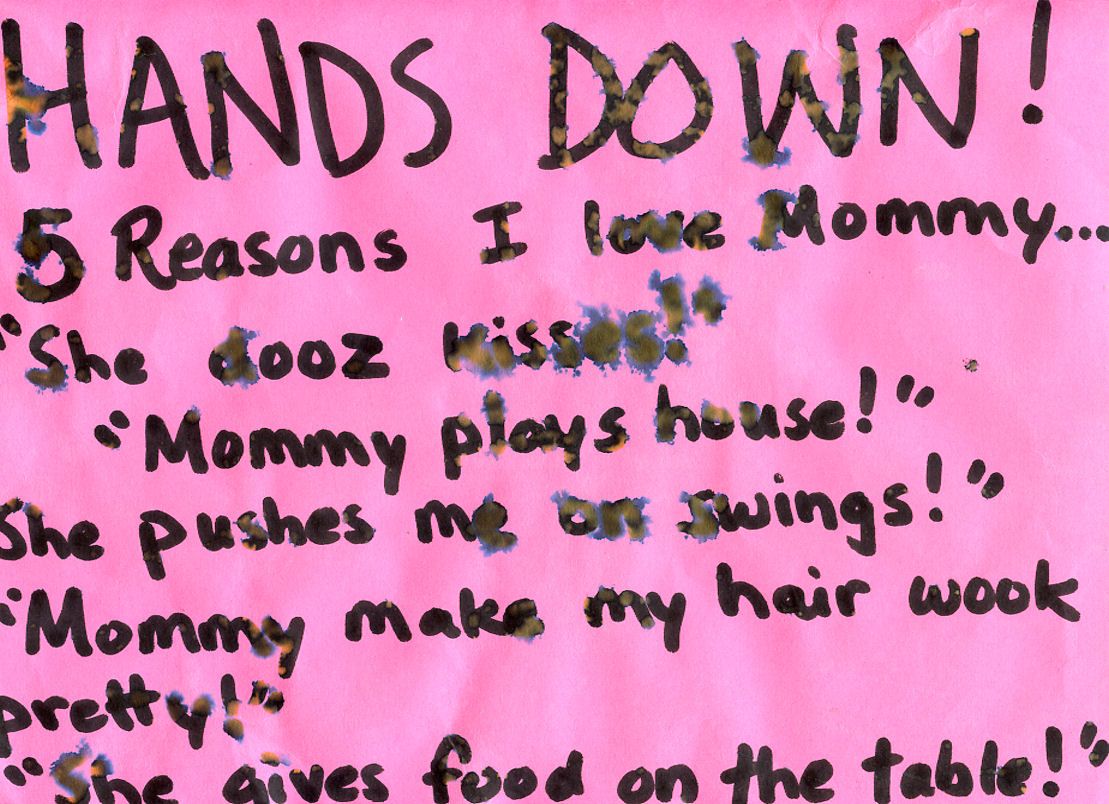 HANDS DOWN!
5 Reasons I love Mommy...
"She dooz kisses!"
"Mommy plays house!"
She pushes me on swings!"
"Mommy make my hair wook
pretty!"
"She gives food on the table!"